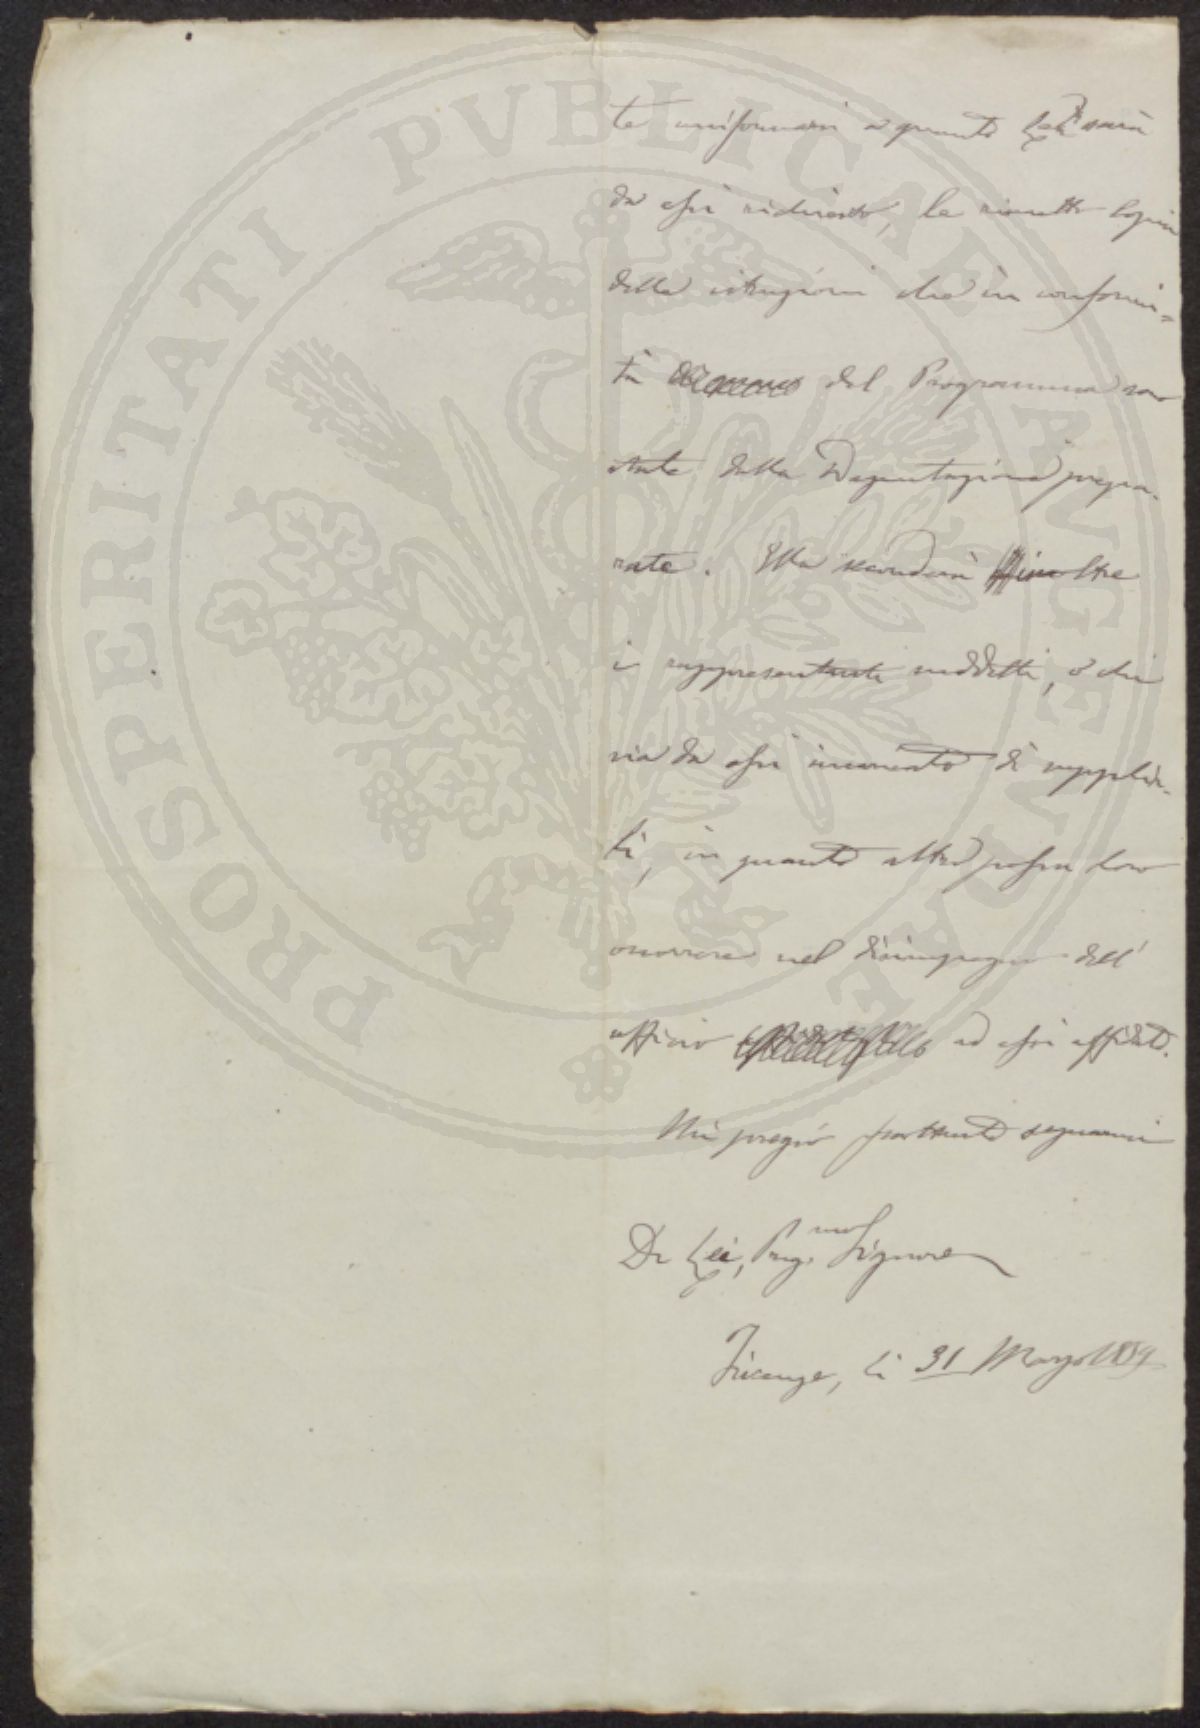 PROSPERITATI PVBLICAE AVGENDAE
te uniformarsi a quanto Le sarà
da essi richiesto, le rimetto copia
delle istruzioni che in conformi=
tà del Programma sono
state dalla Deputazione prepa-
rate. Ella seconderà inoltre
i rappresentanti suddetti, o chi
sia da essi incaricato di supplir-
li, in quanto altro possa loro
occorrere nel disimpegno dell'
officio ad essi affidato.
Mi pregio frattanto segnarmi
Di Lei, Preg.mo Signore
Firenze, li 31 Marzo 1859